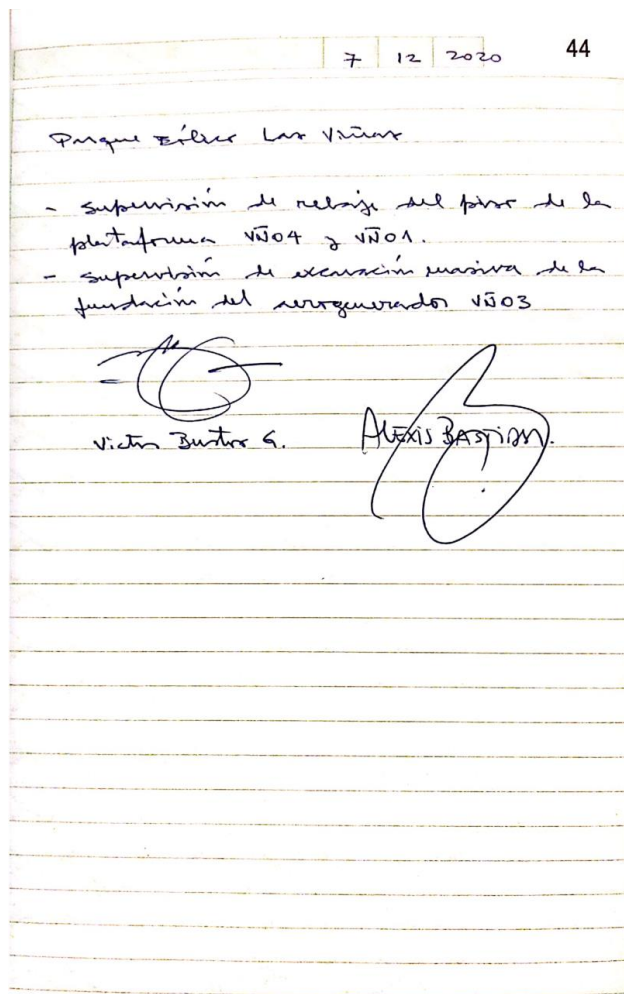 7 12 2020 44
Parque Eólico Las Viñas
- supervisión de rebaje del piso de la
plataforma VÑ04 y VÑ01.
- supervisión de excavación masiva de la
fundación del aerogenerador VÑ03
Victor Bustos G. ALEXIS BASTIAN.